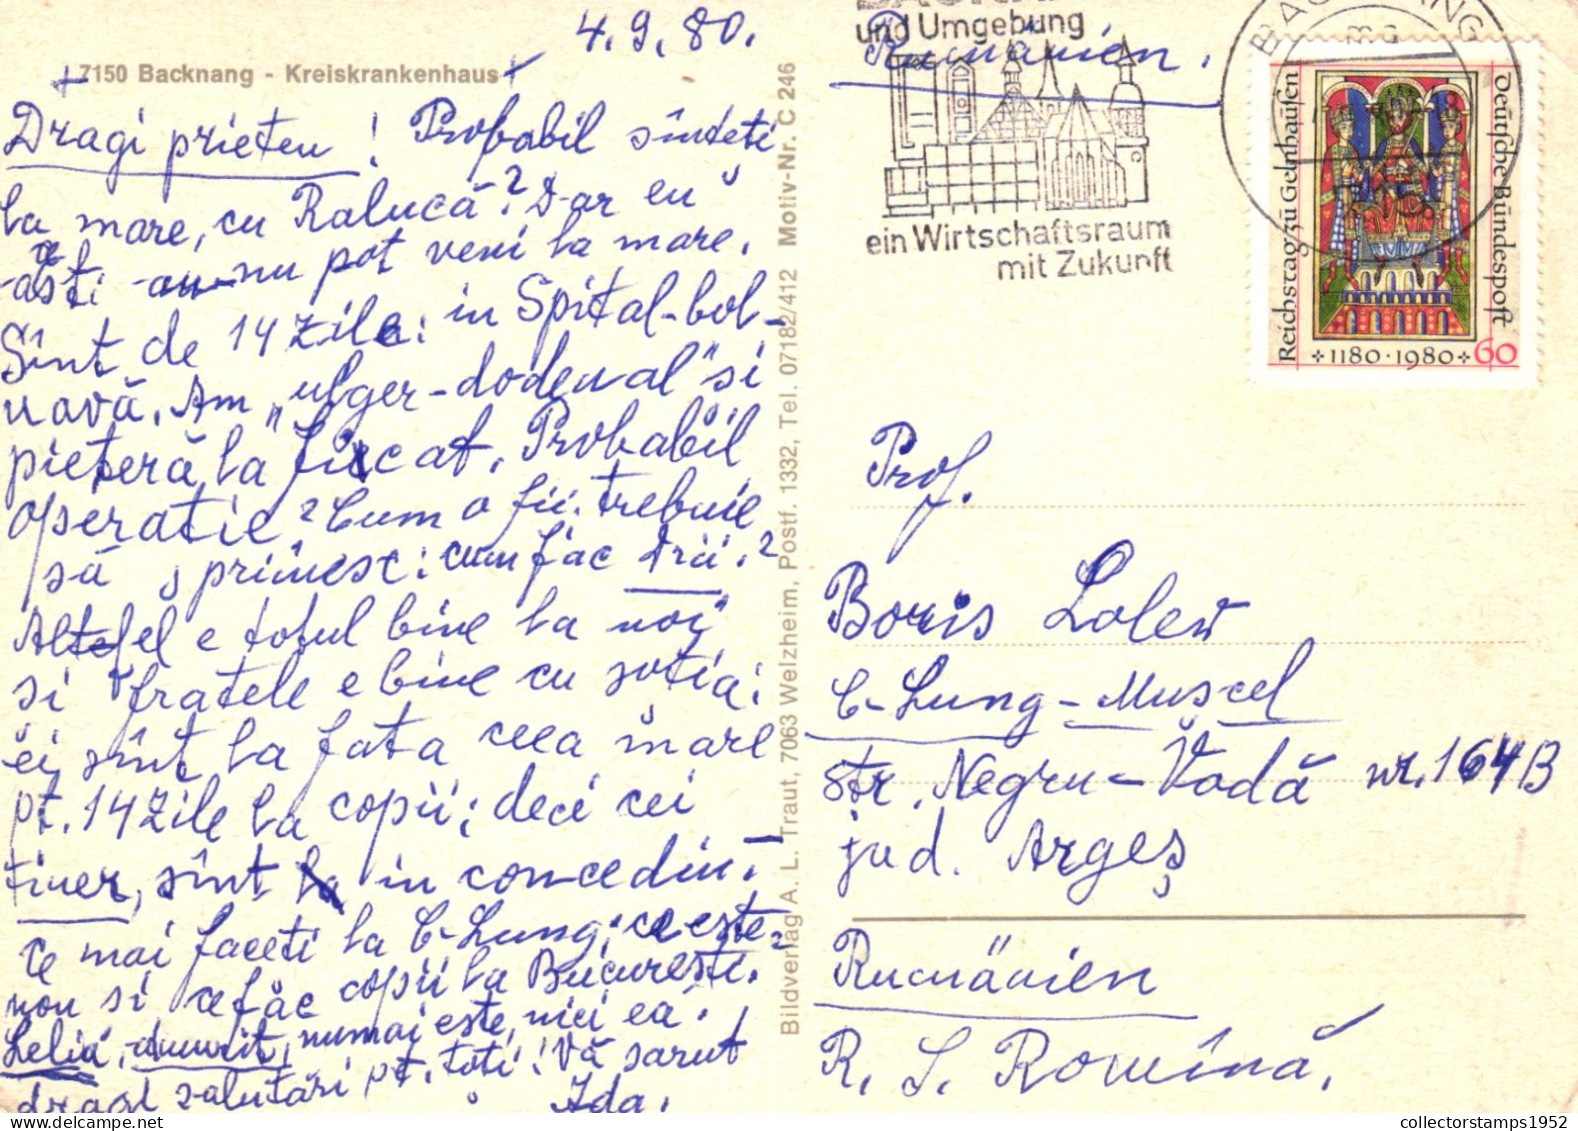 4.9.80.
7150 Backnang - Kreiskrankenhaus
Dragi prieteni! Probabil sînteti
la mare, cu Ralucă? Dar eu
nu pot veni la mare.
Sînt de 14 zile: in Spital-bol-
navă. Am „ulger-dodenal" si
pieteră la ficcat. Probabil
operatie? Cum o fii. trebuie
să primesc: cum fac Drii.?
Altefel e totul bine la noi
si fratele e bine cu sotia:
ei, sînt la fata ceea mare
pt. 14 zile la copii; deci cei
tiner, sînt in concediu!
Ce mai faceti la C-Lung; ce este
nou si ce fac copii la Bucuresti.
Lelia, numai este, nici ea!
dragi salutări pt. toti! Vă sarut
Ida.
Bildverlag A. L. Traut, 7063 Welzheim, Postf. 1332, Tel. 07182/412 Motiv-Nr. C 246
und Umgebung
Rumänien.
ein Wirtschaftsraum
mit Zukunft
BACKNANG
Reichstag zu Gelnhausen
Deutsche Bundespost
1180 · 1980
60
Prof.
Boris Lolev
C-Lung-Muscel
str. Negru-Vodă nr. 164B
jud. Argeş
Rumänien
R. S. Romînă.
collectorstamps1952